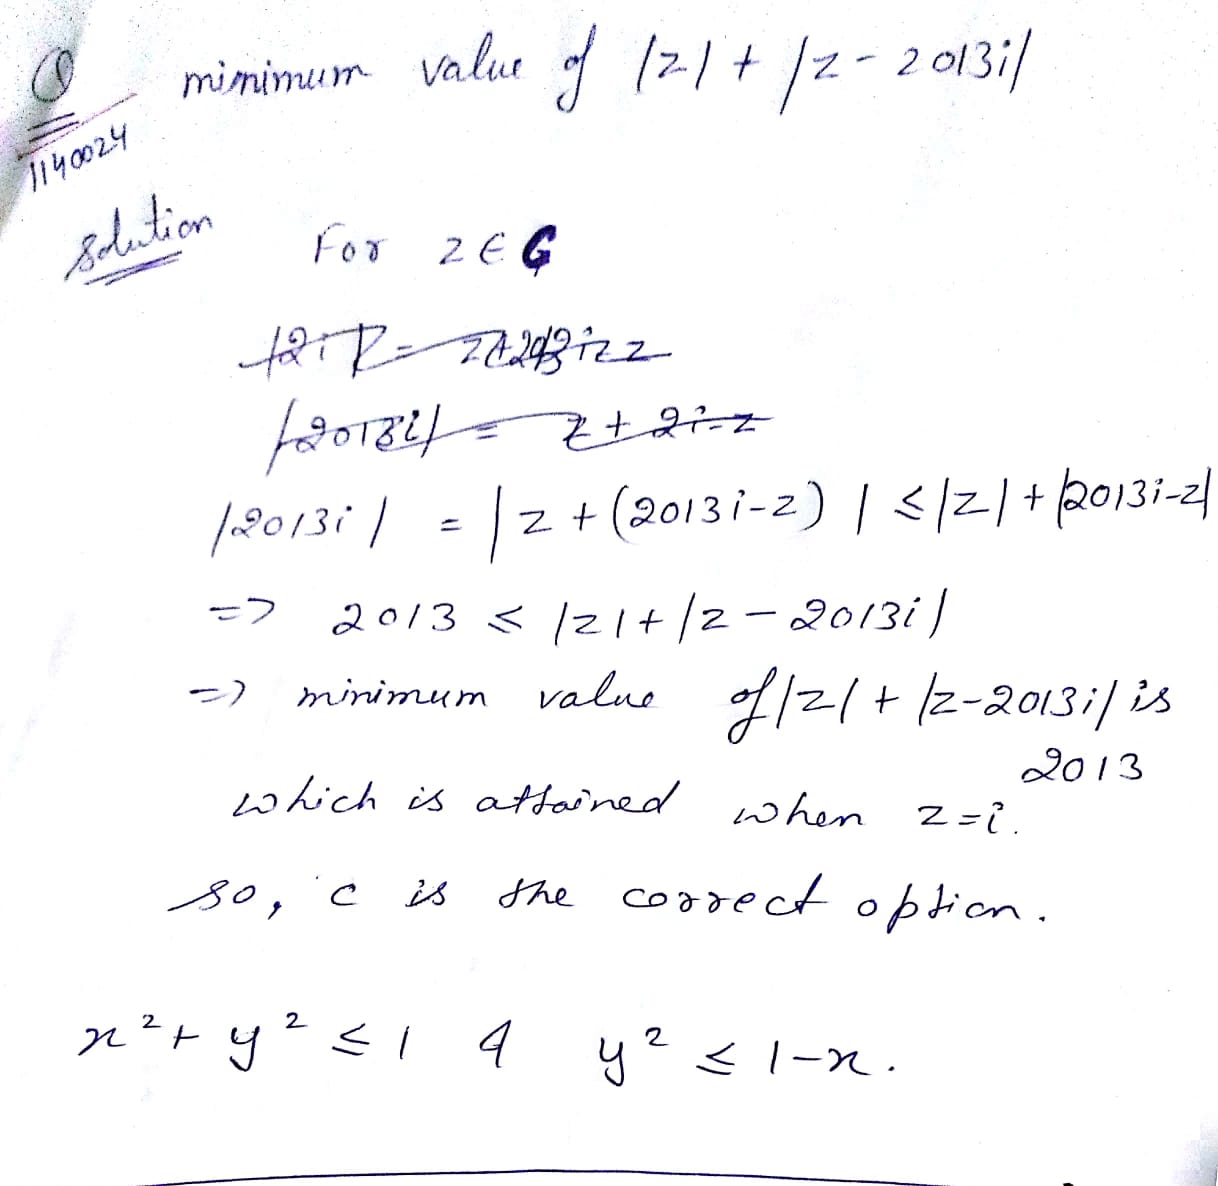 Q minimum value of |z| + |z - 2013i|
1140024
Solution For z ∈ C
|2013i| = z + 2i - z
|2013i| = |z + (2013i - z)| ≤ |z| + |2013i - z|
=> 2013 ≤ |z| + |z - 2013i|
=> minimum value of |z| + |z - 2013i| is
2013
which is attained when z = i.
so, c is the correct option.
x² + y² ≤ 1 & y² ≤ 1 - x.